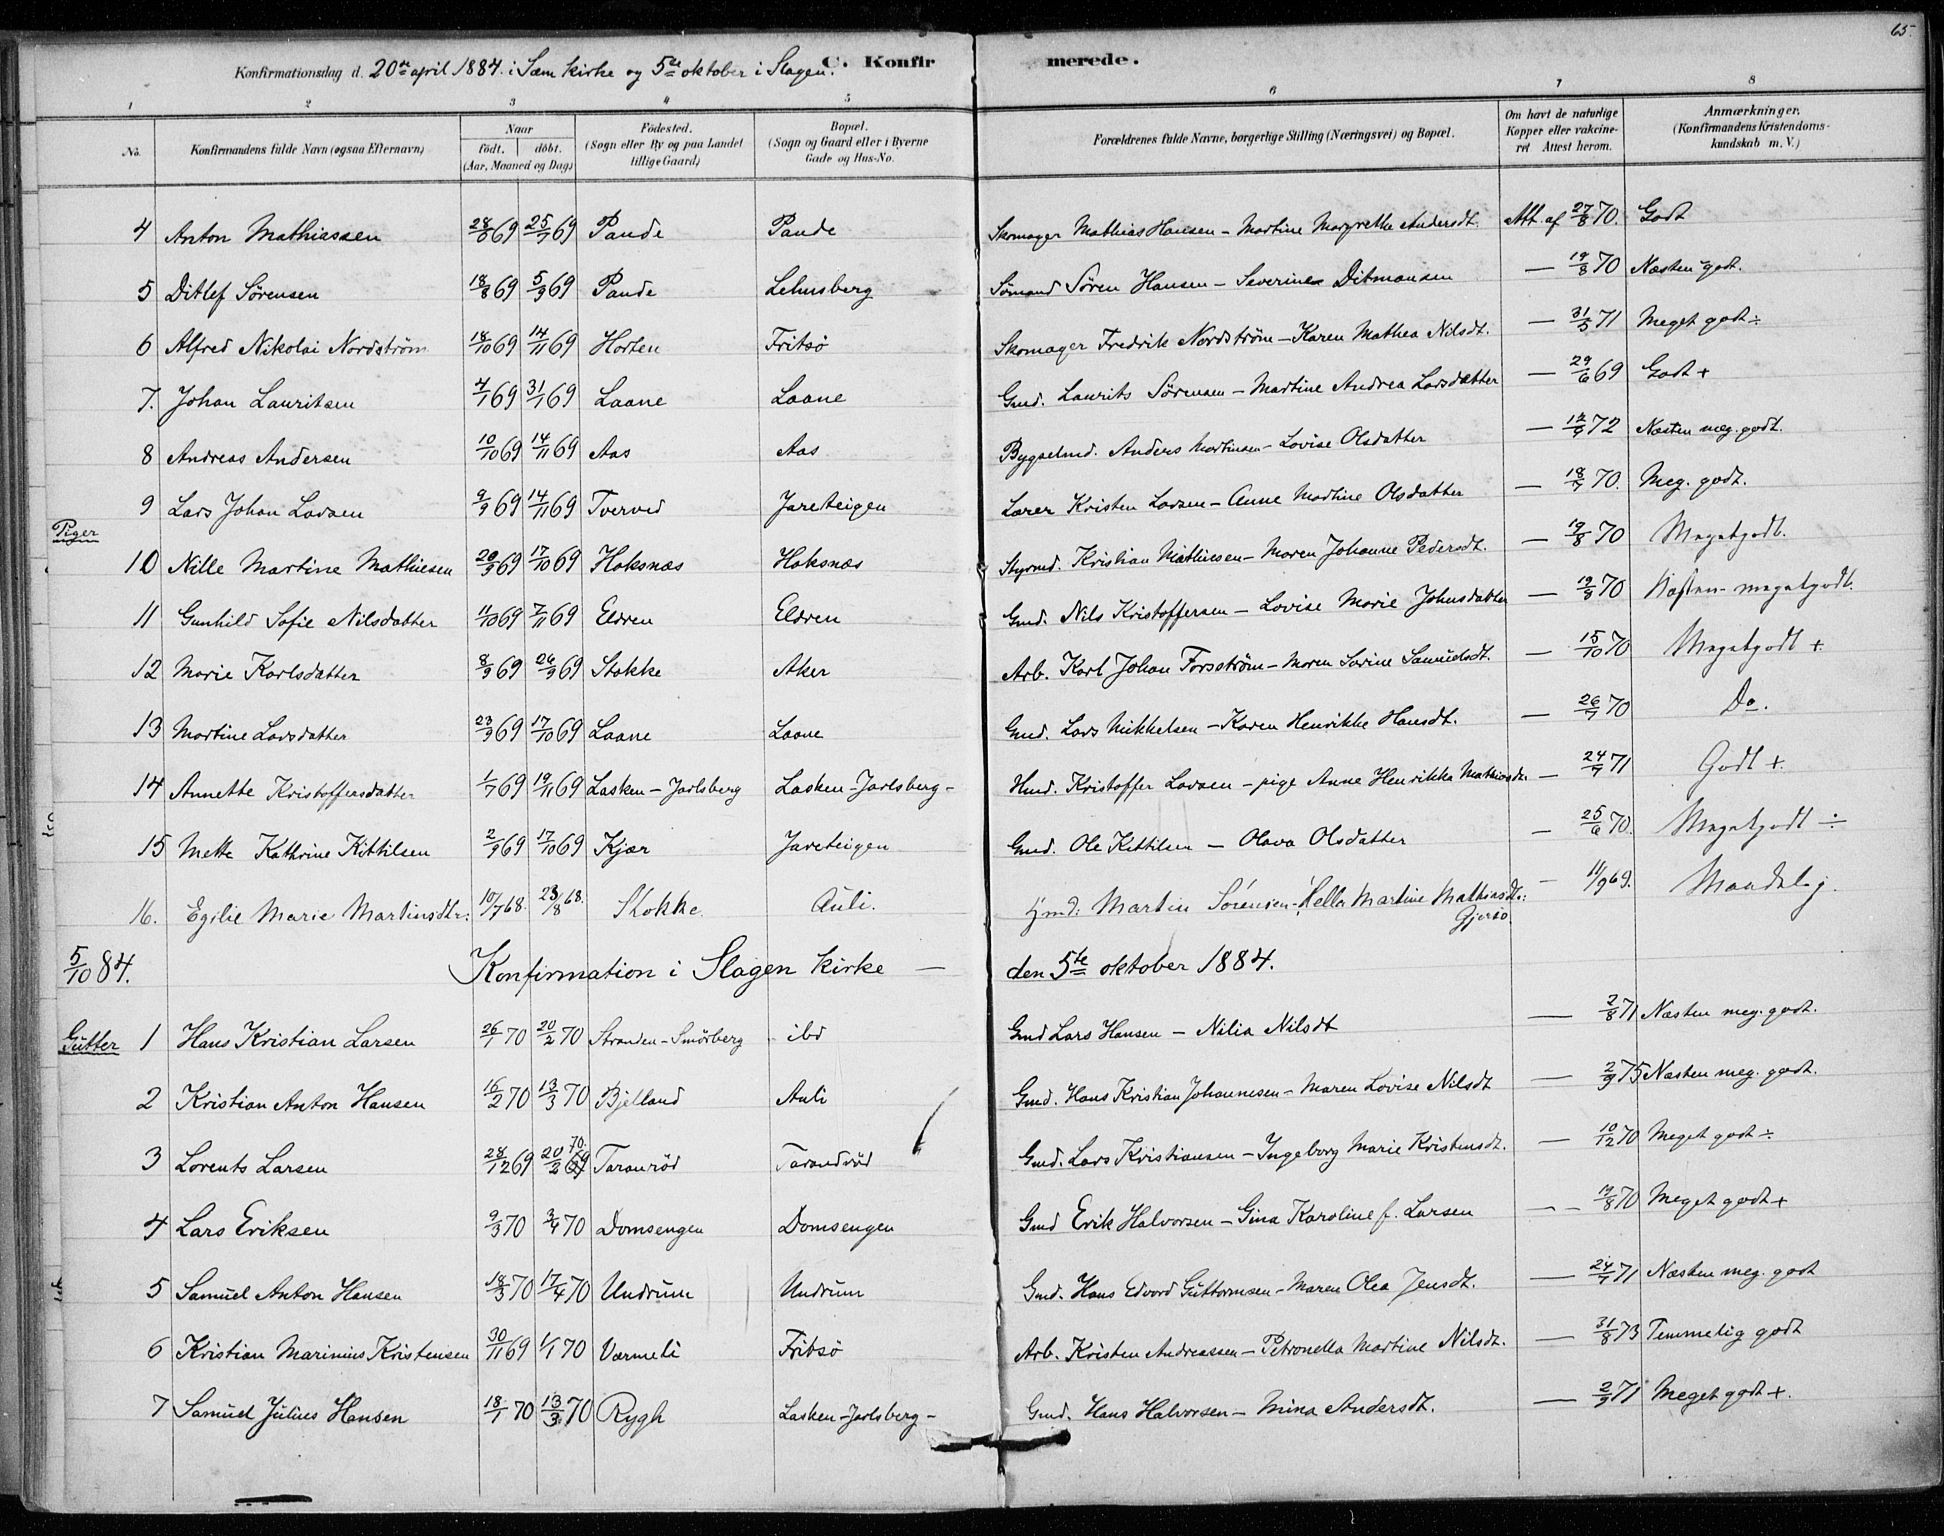 65.
Konfirmationsdag d. 20de april 1884. i Sæm kirke og 5te oktober i Slagen. C. Konfirmerede.
1 2 3 4 5 6 7 8
No. Konfirmandens fulde Navn (ogsaa Efternavn) Naar født, døbt. (Aar, Maaned og Dag) Fødested. (Sogn eller By og paa Landet tillige Gaard) Bopæl. (Sogn og Gaard eller i Byerne Gade og Hus-No. Forældrenes fulde Navne, borgerlige Stilling (Næringsvei) og Bopæl. Om havt de naturlige Kopper eller vakcineret Attest herom. Anmærkninger. (Konfirmandens Kristendomskundskab m. V.)
4 Anton Mathiassen 69 69 Pande Pande Skomager Mathias Hansen - Martine Margrethe Andersdt. Att. af 27/8 70. Godt
5 Ditlef Sørensen 18/8 69 5/9 69 Pande Lehnsberg Sømand Søren Hansen - Severine Ditmansen — 19/8 70 Næsten godt.
6 Alfred Nikolai Nordstrøm 18/10 69 14/11 69 Horten Fritsø Skomager Fredrik Nordstrøm - Karen Mathea Nilsdt. — 31/5 71 Meget godt ÷
7. Johan Lauritsen 4/1 69 31/1 69 Laane Laane Gmd. Laurits Sørensen - Martine Andrea Larsdatter — 29/6 69 Godt +
8 Andreas Andersen 10/10 69 14/11 69 Aas Aas Bygselmd. Anders Martinsen - Lovise Olsdatter — 72 Næsten meg. godt.
9 Lars Johan Larsen 9/9 69 14/11 69 Tverved Jareteigen Lærer Kristen Larsen - Anne Martine Olsdatter — 18/7 70. Meg. godt.
Piger
10 Nille Martine Mathiesen 20/9 69 17/10 69 Hoksnæs Hoksnæs Styrmd. Kristian Mathiesen - Maren Johanne Pedersdt. — 19/8 70 Megetgodt.
11 Gunhild Sofie Nilsdatter 11/10 69 7/11 69 Eldren Eldren Gmd. Nils Kristoffersen - Lovise Marie Johnsdatter — 19/8 70 Næsten megetgodt.
12 Marie Karlsdatter 8/9 69 26/9 69 Stokke Aker Arb. Karl Johan Forsstrøm - Maren Sørine Samuelsdt. — 15/10 70 Megetgodt +
13 Martine Larsdatter 23/9 69 17/10 69 Laane Laane Gmd. Lars Mikkelsen - Karen Henrikke Hansdt. — 26/7 70 Do.
14 Annette Kristoffersdatter 1/7 69 19/11 69 Lasken - Jarlsberg Lasken - Jarlsberg - Hmd. Kristoffer Larsen - pige Anne Henrikka Mathiasdt. — 24/7 71 Godt +
15 Mette Kathrine Kittilsen 2/9 69 17/10 69 Kjær Jareteigen Gmd. Ole Kittilsen - Olava Olsdatter — 25/6 70. Megetgodt ÷
16. Egilie Marie Martinsdtr. 10/7 68. 23/8 68. Stokke Auli. Martin Sørensen - Helle Martine Mathiasdt: Gjersø. — 11/9 69. Maadelig.
5/10 84. Konfirmation i Slagen kirke — den 5te oktober 1884.
Gutter 1 Hans Kristian Larsen 26/1 70 20/2 70 Stranden - Smørberg ibd Gmd Lars Hansen - Nilia Nilsdt — 2/8 71 Næsten meg. godt.
2 Kristian Anton Hansen 16/2 70 13/3 70 Bjelland Auli Gmd. Hans Kristian Johannesen - Maren Lovise Nilsdt — 2/9 75 Næsten meg. godt.
3 Lorents Larsen 28/12 69 20/2 70. Taranrød Tarandrød Gmd. Lars Kristiansen - Ingeborg Marie Kristensdt. — 10/12 70 Meget godt ÷
4 Lars Eriksen 9/3 70 3/4 70 Domsengen Domsengen Gmd Erik Halvorsen - Gina Karoline f. Larsen — 70 Meget godt +
5 Samuel Anton Hansen 18/3 70 17/4 70 Undrum Undrum Gmd. Hans Edvard Guttormsen - Maren Olea Jensdt. — 24/7 71 Næsten meg. godt
6 Kristian Marinius Kristensen 30/11 69 1/1 70 Varmeli Fritsø Arb. Kristen Andreassen - Petronella Martine Nilsdt. — 31/8 73 Temmelig godt
7 Samuel Julius Hansen 18/1 70 13/3 70 Rygh Lasken - Jarlsberg - Gmd. Hans Halvorsen - Mina Andersdt. — 2/9 71 Meget godt +.